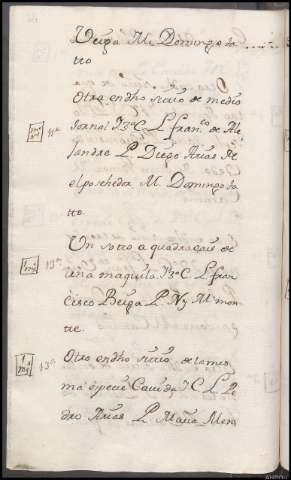 Veiga M. Domingo So
tto
Otra en dho sitio de medio
Jornal J3ª C. L. Fran.co de Ale
jandre P. Diego Arias N.
el posehedor M. Domingo So
tto
11ª
Un sotto a quadraçais de
una maquila J3ª C L. fran
cisco Beiga P. N y M. mon
te.
13ª
Otro en dho sitio de la mis
ma especie Cavida J C L. Pe
dro Arias P. Maria Mon
13ª